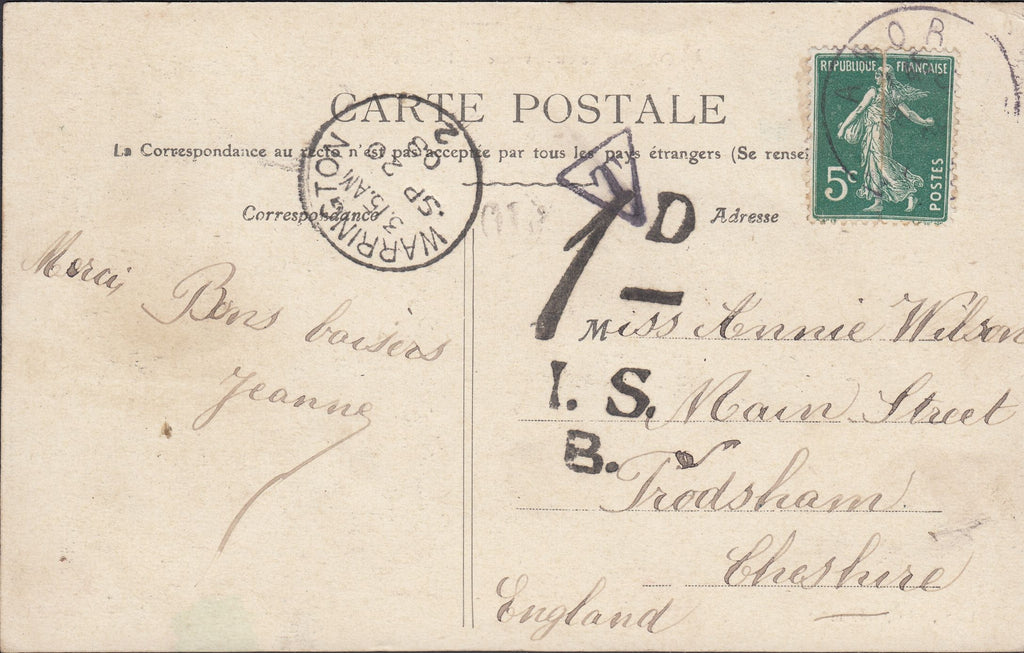 CARTE POSTALE
La Correspondance au recto n'est pas acceptée par tous les pays étrangers (Se rense
Correspondance
Adresse
REPUBLIQUE FRANÇAISE
5c
POSTES
WARRINGTON
3.15.AM
SP 20
09
2
T
1D
I. S.
B.
Merci
Bons baisers
Jeanne
Miss Annie Wilson
Main Street
Frodsham
Cheshire
England